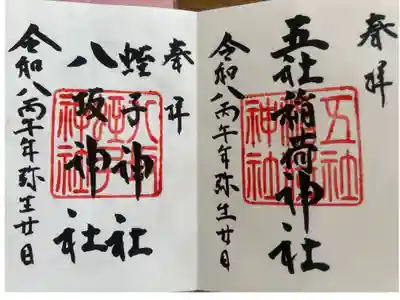 奉拝
五社稲荷神社
五社
神社
令和八丙午年弥生廿日
奉拝
蛭子神社
八坂神社
令和八丙午年弥生廿日